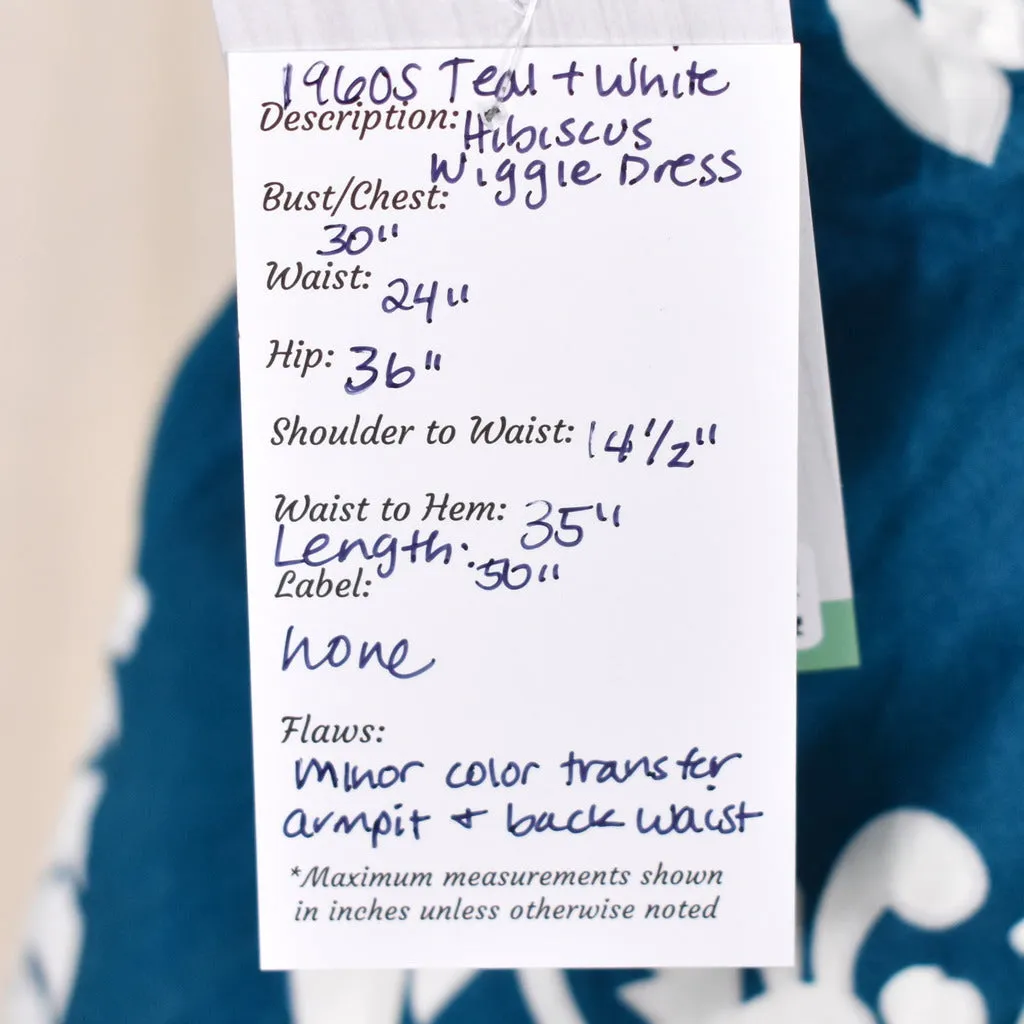 1960s Teal + White
Description: Hibiscus
Wiggle Dress
Bust/Chest:
30"
Waist: 24"
Hip: 36"
Shoulder to Waist: 14 1/2"
Waist to Hem: 35"
Length: 50"
Label:
none
Flaws:
minor color transfer
armpit + back waist
*Maximum measurements shown
in inches unless otherwise noted